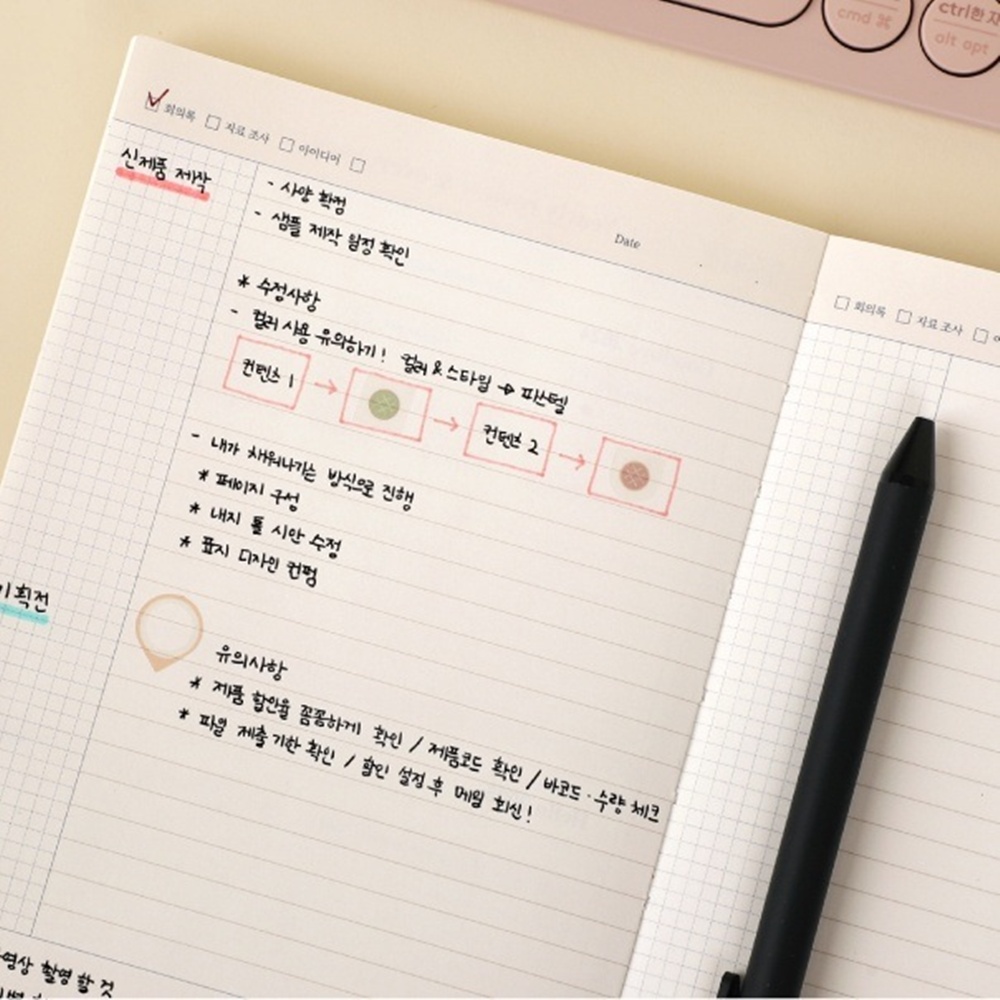 cmd ⌘
ctrl 한자
alt opt
회의록 자료 조사 아이디어
Date
신제품 제작
- 사양 확정
- 샘플 제작 일정 확인
* 수정사항
- 컬러 사용 유의하기! 컬러 & 스타일 → 파스텔
컨텐츠 1 → → 컨텐츠 2 →
- 내가 채워나가는 방식으로 진행
* 페이지 구성
* 내지 톤 시안 수정
* 표지 디자인 컨펌
기획전
유의사항
* 제품 할인율 꼼꼼하게 확인 / 제품코드 확인 / 바코드 · 수량 체크
* 파일 제출 기한 확인 / 할인 설정 후 메일 회신!
영상 촬영 할 것
회의록 자료 조사